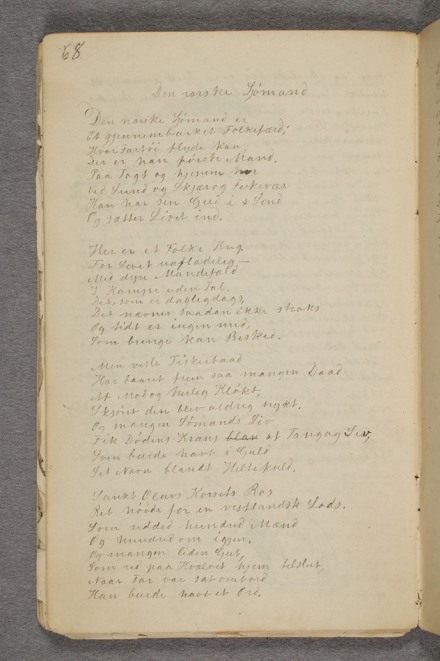 68
Den norske Sømand
Den norske Sømand er
Et gjennembarket Folkefærd;
Hvor Fartøi flyde kan,
Der er han første Mand.
Paa Togt og hjemme
Ved Sund og Skjær og Fiskevær
Han har sin Gud i
Og sætter Livet ind.
Her er et Folke
For Livet uafladelig
Med dyre Mandefald
I Kampe uden Tal.
Det, som er dagligdags,
Det nævner saadan ikke straks
Og tidt er ingen med,
Som bringe kan Besked.
Men vesle Fiskerbaad
Har baaret frem saa mangen Daad
Af Mod og Kløkt,
Skjønt den blev aldrig rygt.
Og mangen Sømands Liv
Fik Dødens Krans af Tang og Siv,
Som burde havt i Guld
Sit Navn blandt Heltekuld.
Sankt Olavs Korsets Ros
Ret høvde for en vestlandsk Lods.
Som redded hundred Mand
Og hundred om igjen.
Og mangen liden Gut,
Som red paa Hvalvet hjem tilslut,
Naar Far var sat ombord
Han burde havt et Ord.